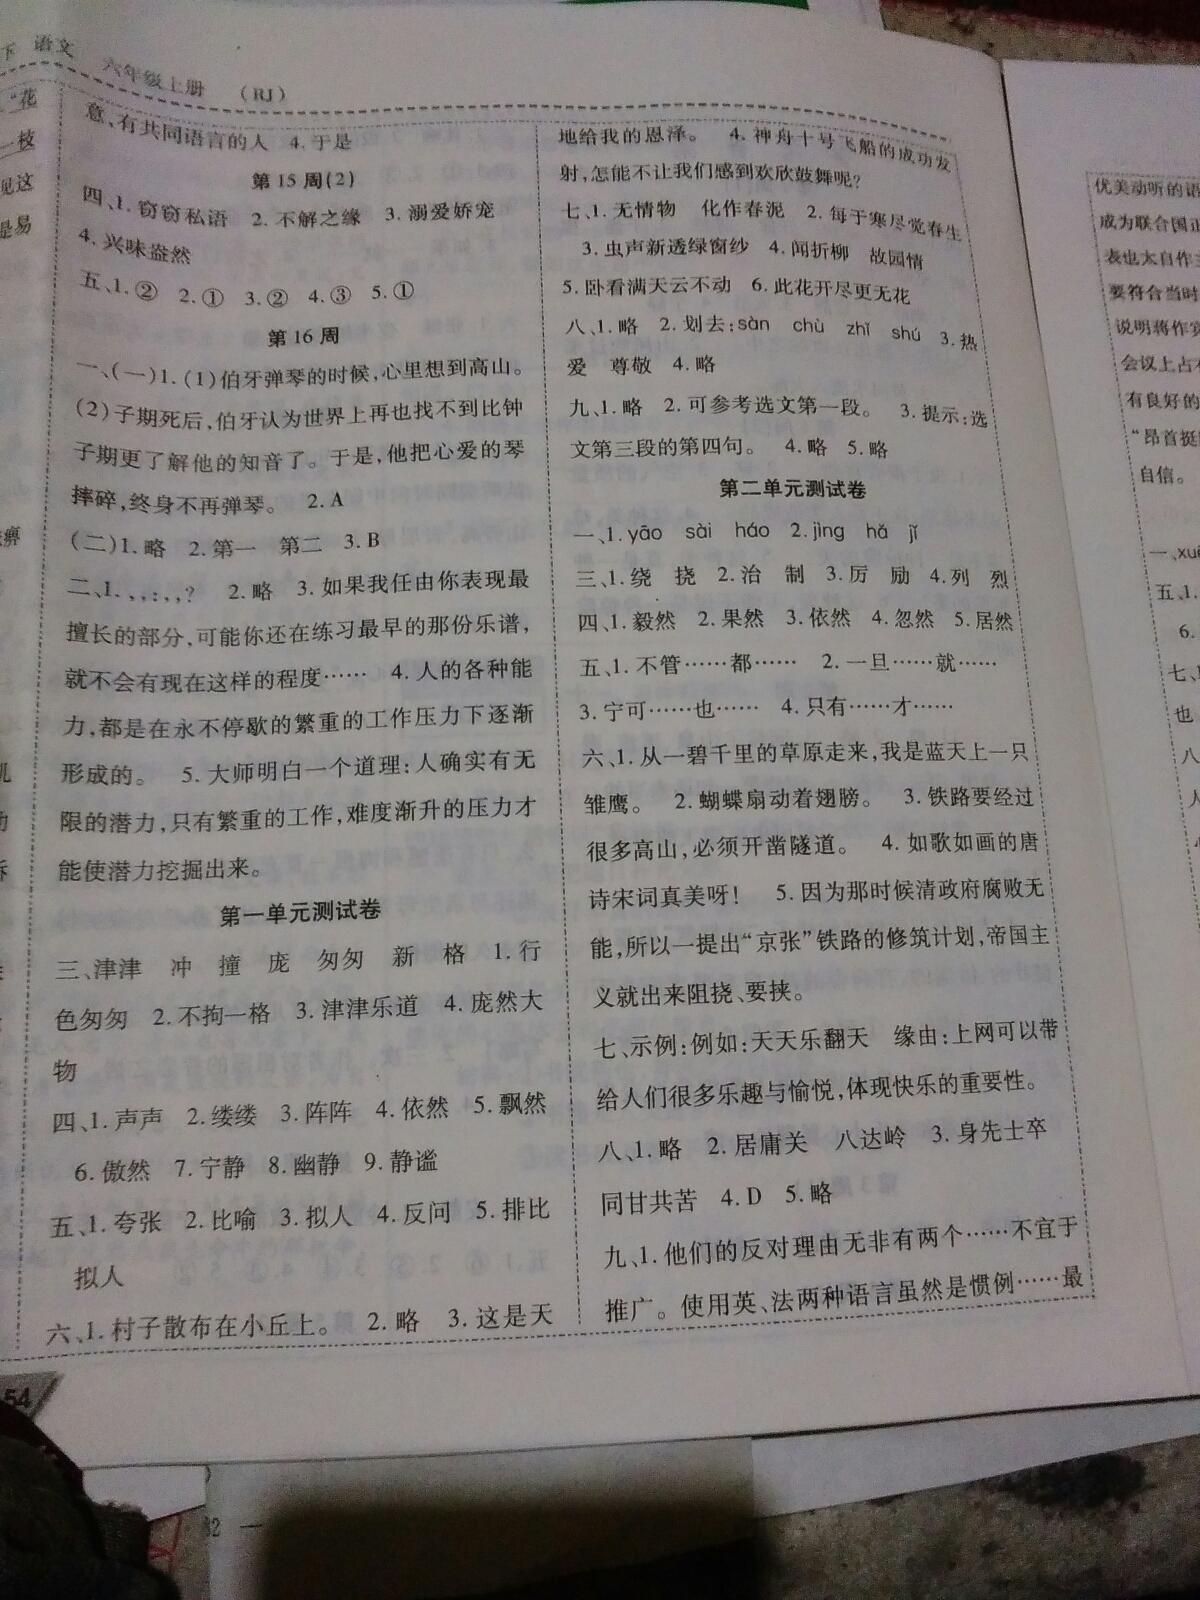 下 语文 六年级上册 (RJ)
“花
一枝
见这
是易
意,有共同语言的人 4.于是
第15周(2)
四、1.窃窃私语 2.不解之缘 3.溺爱娇宠
4.兴味盎然
五、1.② 2.① 3.② 4.③ 5.①
第16周
一、(一)1.(1)伯牙弹琴的时候,心里想到高山。
(2)子期死后,伯牙认为世界上再也找不到比钟
子期更了解他的知音了。于是,他把心爱的琴
摔碎,终身不再弹琴。 2.A
(二)1.略 2.第一 第二 3.B
二、1. , , : , , ? 2.略 3.如果我任由你表现最
擅长的部分,可能你还在练习最早的那份乐谱,
就不会有现在这样的程度…… 4.人的各种能
力,都是在永不停歇的繁重的工作压力下逐渐
形成的。 5.大师明白一个道理:人确实有无
限的潜力,只有繁重的工作,难度渐升的压力才
能使潜力挖掘出来。
第一单元测试卷
三、津津 冲 撞 庞 匆匆 新 格 1.行
色匆匆 2.不拘一格 3.津津乐道 4.庞然大
物
四、1.声声 2.缕缕 3.阵阵 4.依然 5.飘然
6.傲然 7.宁静 8.幽静 9.静谧
五、1.夸张 2.比喻 3.拟人 4.反问 5.排比
拟人
六、1.村子散布在小丘上。 2.略 3.这是天
地给我的恩泽。 4.神舟十号飞船的成功发
射,怎能不让我们感到欢欣鼓舞呢?
七、1.无情物 化作春泥 2.每于寒尽觉春生
3.虫声新透绿窗纱 4.闻折柳 故园情
5.卧看满天云不动 6.此花开尽更无花
八、1.略 2.划去:sàn chù zhǐ shú 3.热
爱 尊敬 4.略
九、1.略 2.可参考选文第一段。 3.提示:选
文第三段的第四句。 4.略 5.略
第二单元测试卷
一、1.yāo sài háo 2.jìng hǎ jǐ
三、1.绕 挠 2.治 制 3.厉 励 4.列 烈
四、1.毅然 2.果然 3.依然 4.忽然 5.居然
五、1.不管……都…… 2.一旦……就……
3.宁可……也…… 4.只有……才……
六、1.从一碧千里的草原走来,我是蓝天上一只
雏鹰。 2.蝴蝶扇动着翅膀。 3.铁路要经过
很多高山,必须开凿隧道。 4.如歌如画的唐
诗宋词真美呀! 5.因为那时候清政府腐败无
能,所以一提出“京张”铁路的修筑计划,帝国主
义就出来阻挠、要挟。
七、示例:例如:天天乐翻天 缘由:上网可以带
给人们很多乐趣与愉悦,体现快乐的重要性。
八、1.略 2.居庸关 八达岭 3.身先士卒
同甘共苦 4.D 5.略
九、1.他们的反对理由无非有两个……不宜于
推广。使用英、法两种语言虽然是惯例……最
优美动听的语
成为联合国正
表也太自作主
要符合当时
说明蒋作宾
会议上占
有良好的
“昂首挺
自信。
一、xuè
五、1.
6.
七、1
也
八、
人
54
32 一